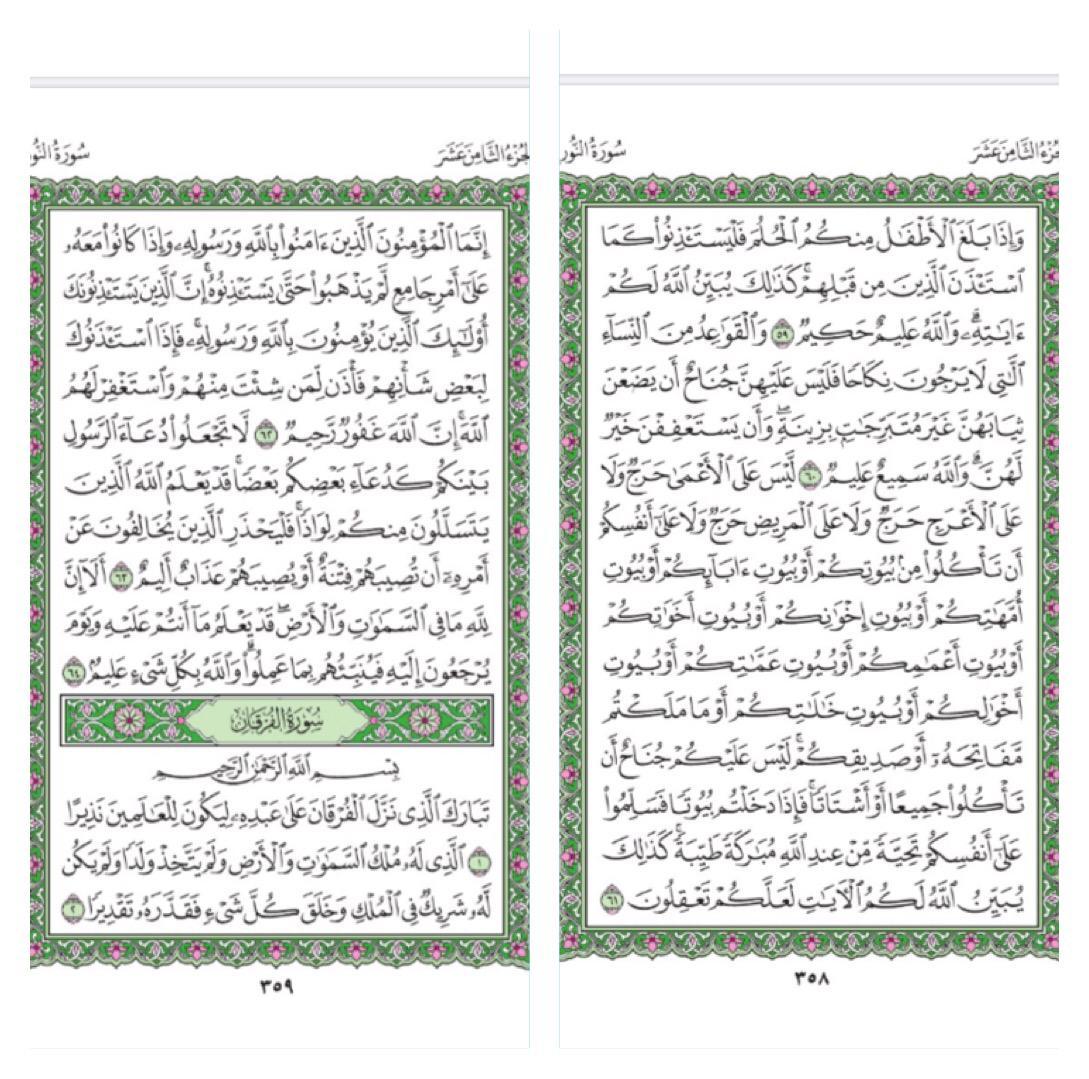 الجزء الثامن عشر
سورة النور
وَإِذَا بَلَغَ ٱلْأَطْفَٰلُ مِنكُمُ ٱلْحُلُمَ فَلْيَسْتَـْٔذِنُوا۟ كَمَا
ٱسْتَـْٔذَنَ ٱلَّذِينَ مِن قَبْلِهِمْ ۚ كَذَٰلِكَ يُبَيِّنُ ٱللَّهُ لَكُمْ
ءَايَٰتِهِۦ ۗ وَٱللَّهُ عَلِيمٌ حَكِيمٌ ٥٩ وَٱلْقَوَٰعِدُ مِنَ ٱلنِّسَآءِ
ٱلَّٰتِى لَا يَرْجُونَ نِكَاحًا فَلَيْسَ عَلَيْهِنَّ جُنَاحٌ أَن يَضَعْنَ
ثِيَابَهُنَّ غَيْرَ مُتَبَرِّجَٰتٍۭ بِزِينَةٍ ۖ وَأَن يَسْتَعْفِفْنَ خَيْرٌ
لَّهُنَّ ۗ وَٱللَّهُ سَمِيعٌ عَلِيمٌ ٦٠ لَّيْسَ عَلَى ٱلْأَعْمَىٰ حَرَجٌ وَلَا
عَلَى ٱلْأَعْرَجِ حَرَجٌ وَلَا عَلَى ٱلْمَرِيضِ حَرَجٌ وَلَا عَلَىٰٓ أَنفُسِكُمْ
أَن تَأْكُلُوا۟ مِنۢ بُيُوتِكُمْ أَوْ بُيُوتِ ءَابَآئِكُمْ أَوْ بُيُوتِ
أُمَّهَٰتِكُمْ أَوْ بُيُوتِ إِخْوَٰنِكُمْ أَوْ بُيُوتِ أَخَوَٰتِكُمْ
أَوْ بُيُوتِ أَعْمَٰمِكُمْ أَوْ بُيُوتِ عَمَّٰتِكُمْ أَوْ بُيُوتِ
أَخْوَٰلِكُمْ أَوْ بُيُوتِ خَٰلَٰتِكُمْ أَوْ مَا مَلَكْتُم
مَّفَاتِحَهُۥٓ أَوْ صَدِيقِكُمْ ۚ لَيْسَ عَلَيْكُمْ جُنَاحٌ أَن
تَأْكُلُوا۟ جَمِيعًا أَوْ أَشْتَاتًا ۚ فَإِذَا دَخَلْتُم بُيُوتًا فَسَلِّمُوا۟
عَلَىٰٓ أَنفُسِكُمْ تَحِيَّةً مِّنْ عِندِ ٱللَّهِ مُبَٰرَكَةً طَيِّبَةً ۚ كَذَٰلِكَ
يُبَيِّنُ ٱللَّهُ لَكُمُ ٱلْءَايَٰتِ لَعَلَّكُمْ تَعْقِلُونَ ٦١
٣٥٨
الجزء الثامن عشر
سورة النور
إِنَّمَا ٱلْمُؤْمِنُونَ ٱلَّذِينَ ءَامَنُوا۟ بِٱللَّهِ وَرَسُولِهِۦ وَإِذَا كَانُوا۟ مَعَهُۥ
عَلَىٰٓ أَمْرٍ جَامِعٍ لَّمْ يَذْهَبُوا۟ حَتَّىٰ يَسْتَـْٔذِنُوهُ ۚ إِنَّ ٱلَّذِينَ يَسْتَـْٔذِنُونَكَ
أُو۟لَٰٓئِكَ ٱلَّذِينَ يُؤْمِنُونَ بِٱللَّهِ وَرَسُولِهِۦ ۚ فَإِذَا ٱسْتَـْٔذَنُوكَ
لِبَعْضِ شَأْنِهِمْ فَأْذَن لِّمَن شِئْتَ مِنْهُمْ وَٱسْتَغْفِرْ لَهُمُ
ٱللَّهَ ۚ إِنَّ ٱللَّهَ غَفُورٌ رَّحِيمٌ ٦٢ لَّا تَجْعَلُوا۟ دُعَآءَ ٱلرَّسُولِ
بَيْنَكُمْ كَدُعَآءِ بَعْضِكُم بَعْضًا ۚ قَدْ يَعْلَمُ ٱللَّهُ ٱلَّذِينَ
يَتَسَلَّلُونَ مِنكُمْ لِوَاذًا ۚ فَلْيَحْذَرِ ٱلَّذِينَ يُخَالِفُونَ عَنْ
أَمْرِهِۦٓ أَن تُصِيبَهُمْ فِتْنَةٌ أَوْ يُصِيبَهُمْ عَذَابٌ أَلِيمٌ ٦٣ أَلَآ إِنَّ
لِلَّهِ مَا فِى ٱلسَّمَٰوَٰتِ وَٱلْأَرْضِ ۖ قَدْ يَعْلَمُ مَآ أَنتُمْ عَلَيْهِ وَيَوْمَ
يُرْجَعُونَ إِلَيْهِ فَيُنَبِّئُهُم بِمَا عَمِلُوا۟ ۗ وَٱللَّهُ بِكُلِّ شَىْءٍ عَلِيمٌۢ ٦٤
سُورَةُ الفُرْقَانِ
بِسْمِ ٱللَّهِ ٱلرَّحْمَٰنِ ٱلرَّحِيمِ
تَبَارَكَ ٱلَّذِى نَزَّلَ ٱلْفُرْقَانَ عَلَىٰ عَبْدِهِۦ لِيَكُونَ لِلْعَٰلَمِينَ نَذِيرًا
١ ٱلَّذِى لَهُۥ مُلْكُ ٱلسَّمَٰوَٰتِ وَٱلْأَرْضِ وَلَمْ يَتَّخِذْ وَلَدًا وَلَمْ يَكُن
لَّهُۥ شَرِيكٌ فِى ٱلْمُلْكِ وَخَلَقَ كُلَّ شَىْءٍ فَقَدَّرَهُۥ تَقْدِيرًا ٢
٣٥٩